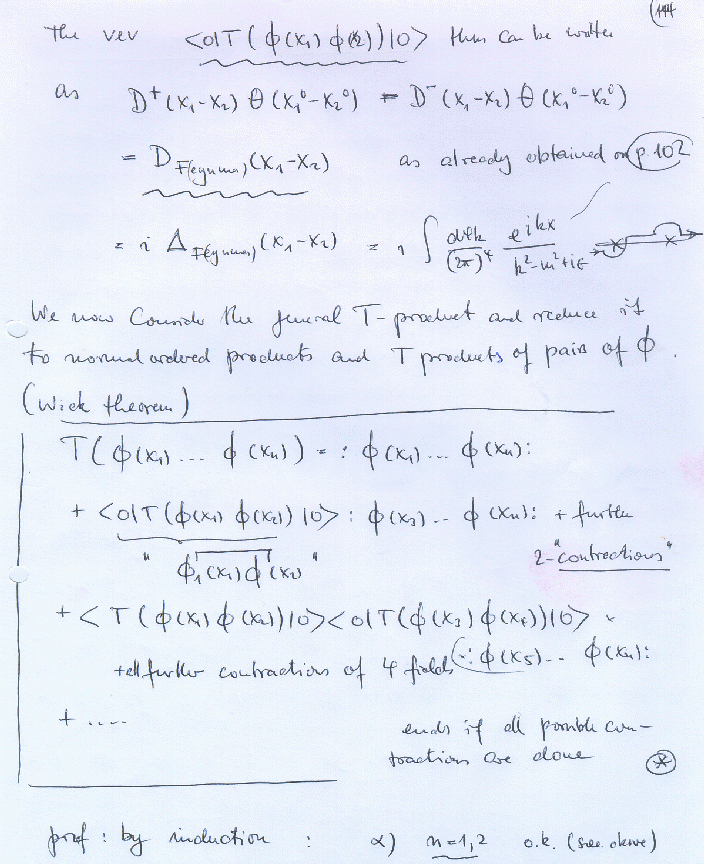 144
The vev <0|T(ϕ(x₁) ϕ(x₂))|0> then can be written
as D⁺(x₁-x₂) Θ(x₁⁰-x₂⁰) = D⁻(x₁-x₂) Θ(x₁⁰-x₂⁰)
= D_F(eynman)(x₁-x₂) as already obtained on p. 102
= i Δ_F(eynman)(x₁-x₂) = i ∫ d⁴k/(2π)⁴ e^{ikx}/(k²-m²+iε)
We now consider the general T-product and reduce it
to normal ordered products and T products of pairs of ϕ.
(Wick theorem)
T(ϕ(x₁) ... ϕ(xₙ)) = : ϕ(x₁) ... ϕ(xₙ):
+ <0|T(ϕ(x₁) ϕ(x₂))|0> : ϕ(x₃) .. ϕ(xₙ): + further
2-"contractions"
" ϕ₁(x₁) ϕ(x₂) "
+ < T(ϕ(x₁) ϕ(x₂))|0><0|T(ϕ(x₃) ϕ(x₄))|0> ×
+all further contractions of 4 fields : ϕ(x₅) .. ϕ(xₙ):
+ ..... ends if all possible con-
tractions are done ⊛
proof : by induction : α) n=1,2 o.k. (see above)